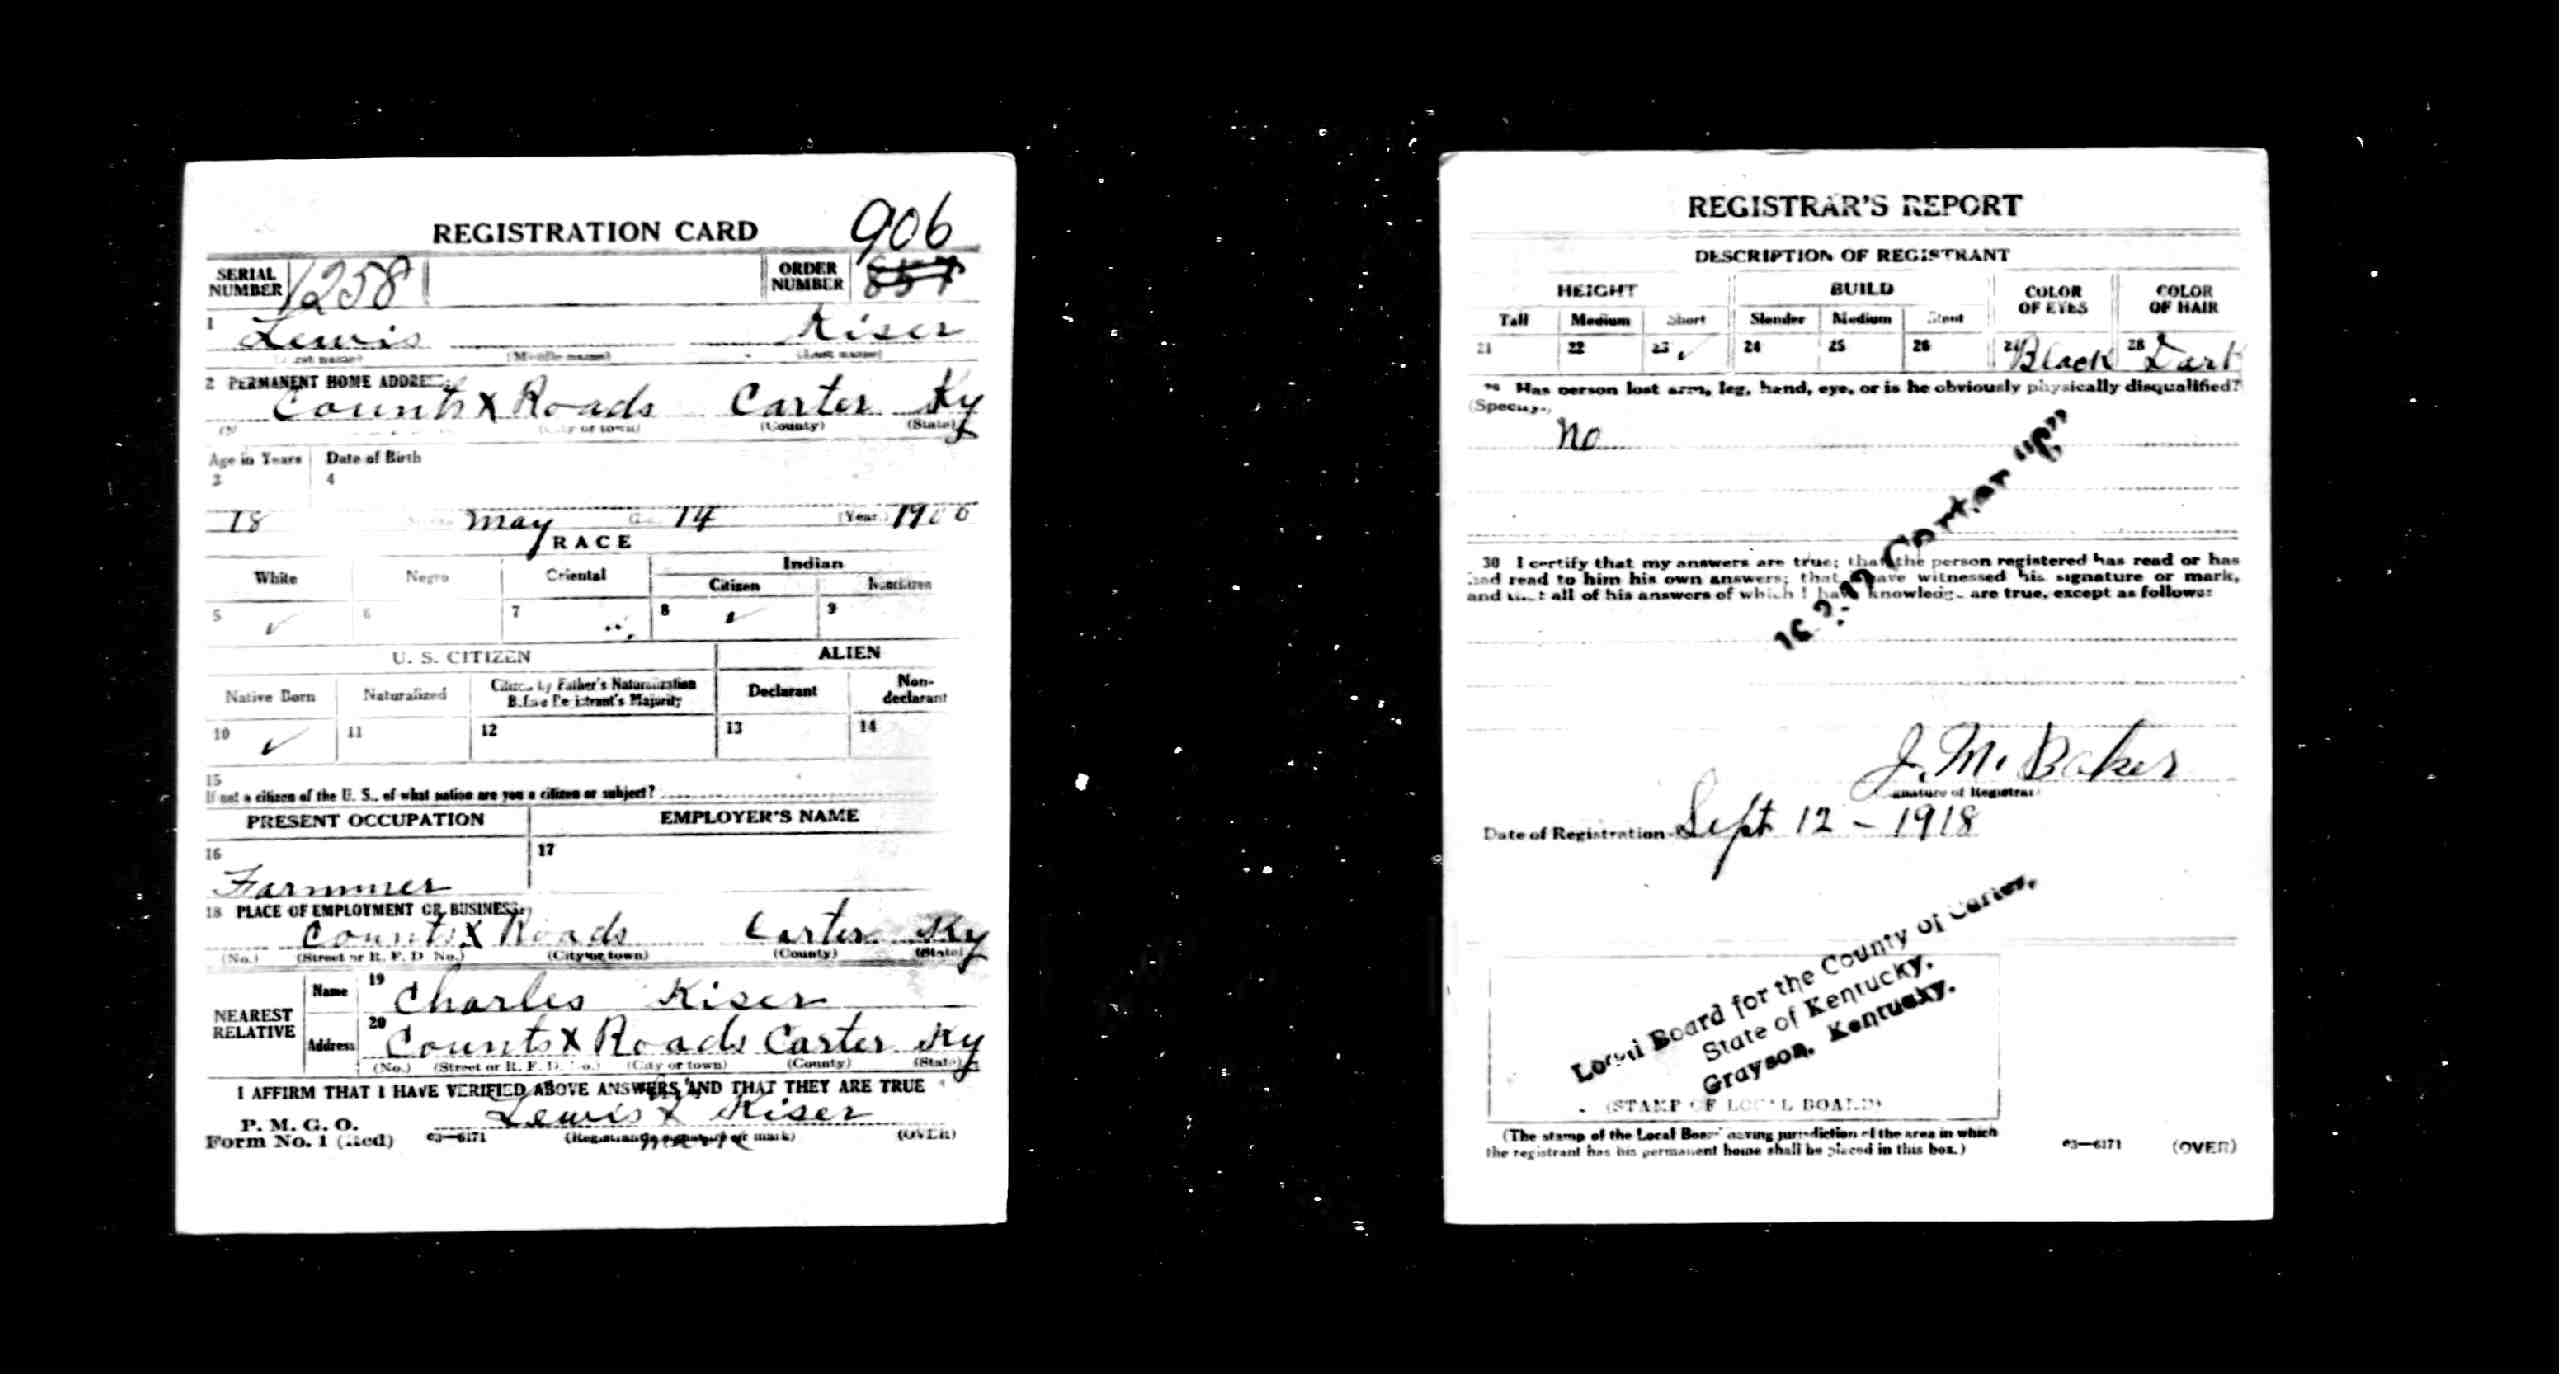 REGISTRATION CARD 906
SERIAL NUMBER 1258 ORDER NUMBER
1 Lewis Kiser
(Middle name) (Last name)
2 PERMANENT HOME ADDRESS:
Counts X Roads Carter Ky
(City or town) (County) (State)
Age in Years Date of Birth
3 4
18 May 14 (Year) 1900
RACE
White Negro Oriental Indian
Citizen Noncitizen
5 ✓ 6 7 8 ✓ 9
U. S. CITIZEN ALIEN
Native Born Naturalized Citizen by Father's Naturalization Before Registrant's Majority Declarant Non-declarant
10 ✓ 11 12 13 14
15
If not a citizen of the U. S., of what nation are you a citizen or subject?
PRESENT OCCUPATION EMPLOYER'S NAME
16 17
Farmmer
18 PLACE OF EMPLOYMENT OR BUSINESS:
Counts X Roads Carter Ky
(No.) (Street or R. F. D. No.) (City or town) (County) (State)
NEAREST RELATIVE Name 19 Charles Kiser
Address 20 Counts X Roads Carter Ky
(No.) (Street or R. F. D. No.) (City or town) (County) (State)
I AFFIRM THAT I HAVE VERIFIED ABOVE ANSWERS AND THAT THEY ARE TRUE
his
P. M. G. O. Lewis X Kiser
Form No. 1 (Red) 03—6171 (Registrant's signature or mark) (OVER)
mark
REGISTRAR'S REPORT
DESCRIPTION OF REGISTRANT
HEIGHT BUILD COLOR OF EYES COLOR OF HAIR
Tall Medium Short Slender Medium Stout
21 22 23 ✓ 24 25 26 27 Black 28 Dark
29 Has person lost arm, leg, hand, eye, or is he obviously physically disqualified?
(Specify.)
No
Carter "C"
30 I certify that my answers are true; that the person registered has read or has
had read to him his own answers; that I have witnessed his signature or mark,
and that all of his answers of which I have knowledge are true, except as follows:
J. M. Baker
(Signature of Registrar)
Date of Registration Sept 12 - 1918
Local Board for the County of Carter,
State of Kentucky,
Grayson, Kentucky.
(STAMP OF LOCAL BOARD)
(The stamp of the Local Board having jurisdiction of the area in which
the registrant has his permanent home shall be placed in this box.)
03—6171 (OVER)